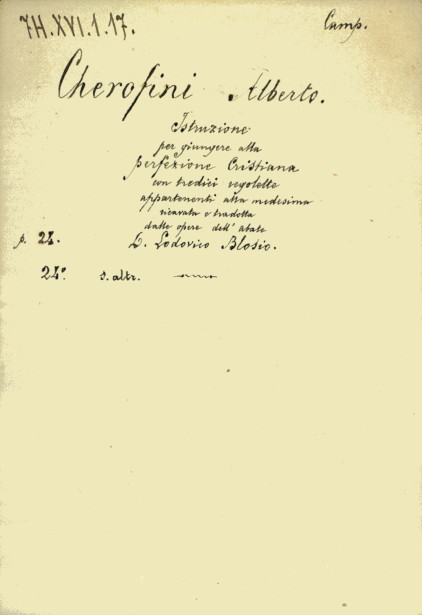 7H.XVI.1.17.
Camp.
Cherofini Alberto.
Istruzione
per giungere alla
perfezione Cristiana
con tredici regolette
appartenenti alla medesima
ricavata e tradotta
dalle opere dell' abate
p. 24. D. Lodovico Blosio.
24º s. altr.